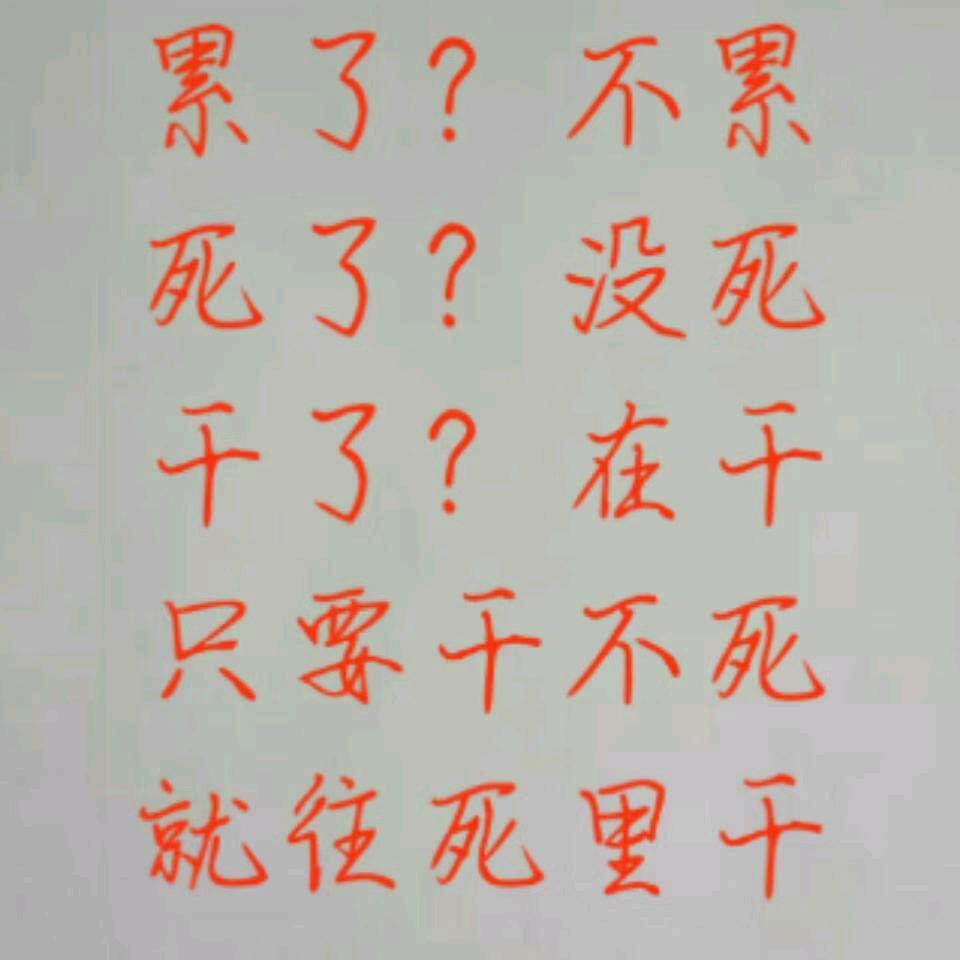 累了? 不累
死了? 没死
干了? 在干
只要干不死
就往死里干